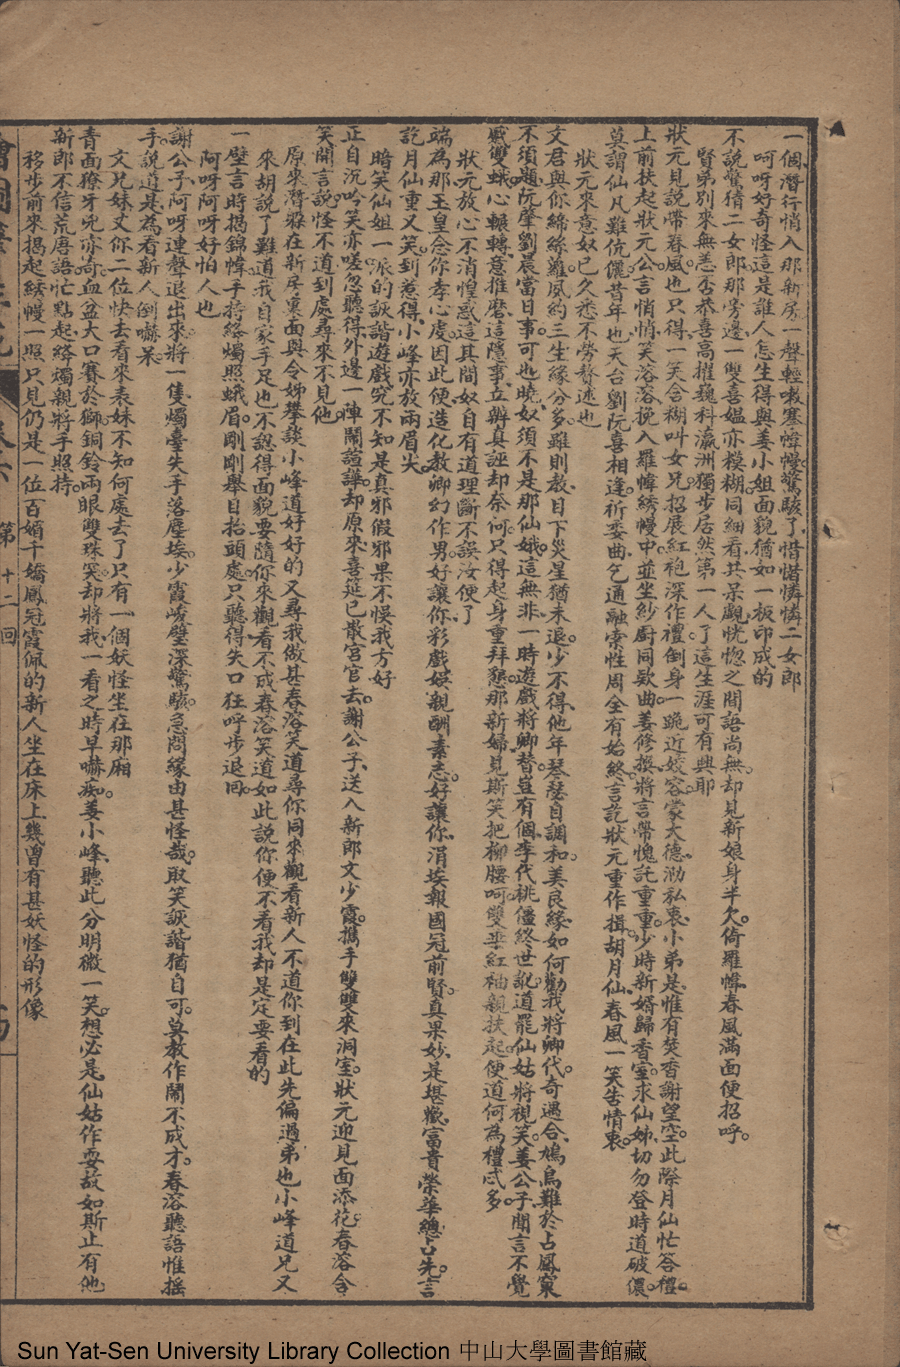 一個潛行悄入那新房一聲輕嗽塞幃幔驚駭了惜惜憐憐二女郎
呵呀好奇怪這是誰人怎生得與姜小姐面貌猶如一板印成的
不說驚猜二女郎那旁邊一雙喜媼亦模糊同細看其呆覷恍惚之間語尚無却見新娘身半欠倚羅幃春風滿面便招呼
賢弟別來無恙否恭喜高擢巍科瀛洲獨步居然第一人了這生涯可有興耶
狀元見說帶春風也只得一笑含糊叫女兄招展紅袍深作禮倒身一跪近姣容蒙大德泐私衷小弟是惟有焚香謝望空此際月仙忙答禮
上前扶起狀元公言悄悄笑溶溶挽入羅幃綉幔中並坐紗廚同欵曲姜修撰將言帶愧託重重少時新婿歸香室求仙姊切勿登時道破儂
莫謂仙凡難伉儷昔年也天台劉阮喜相逢祈委曲乞通融索性周全有始終言訖狀元重作揖胡月仙春風一笑告情衷
狀元來意奴已久悉不勞贅述也
文君與你締絲蘿夙約三生緣分多雖則教目下災星猶未退少不得他年琴瑟自調和美良緣如何勸我將卿代奇遇合鳩鳥難於占鳳窠
不須題阮肇劉晨當日事可也曉奴須不是那仙娥這無非一時遊戲將卿替豈有個李代桃僵終世訛道罷仙姑將視笑姜公子聞言不覺
蹙雙蛾心輾轉意推磨這隱事立辨真誣却奈何只得起身重拜懇那新婦見斯笑把柳腰呵雙垂紅袖親扶起便道何為禮忒多
狀元放心不消惶惑這其間奴自有道理斷不誤汝便了
端為那玉皇念你孝心虔因此便造化教卿幻作男好讓你彩戲娛親酬素志好讓你涓埃報國冠前賢真果妙是堪豔富貴榮華總占先言
訖月仙重又笑到惹得小峰亦放兩眉尖
暗笑仙姐一派的詼諧遊戲究不知是真邪假邪果不悞我方好
正自沉吟笑亦嗟忽聽得外邊一陣鬧諠譁却原來喜筵已散宮官去謝公子送入新郎文少霞攜手雙雙來洞室狀元迎見面添花春溶含
笑開言說怪不道到處尋來不見他
原來潛躲在新房裏面與令姊攀談小峰道好好的又尋我做甚春溶笑道尋你同來觀看新人不道你到在此先偏過弟也小峰道兄又
來胡說了難道我自家手足也不認得面貌要隨你來觀看不成春溶笑道如此說你便不看我却是定要看的
一壁言時揭錦幃手持絳燭照蛾眉剛剛舉目抬頭處只聽得失口狂呼步退回
阿呀阿呀好怕人也
謝公子阿呀連聲退出來將一隻燭臺失手落塵埃少霞峻璧深驚駭急問緣由甚怪哉取笑詼諧猶自可莫教作鬧不成才春溶聽語惟搖
手說道是為看新人倒嚇呆
文兄妹丈你二位快去看來表妹不知何處去了只有一個妖怪坐在那廂
青面獠牙兇亦奇血盆大口賽於獅銅鈴兩眼雙珠突却將我一看之時早嚇痴姜小峰聽此分明微一笑想必是仙姑作耍故如斯止有他
新郎不信荒唐語忙點起絳燭親將手照持
移步前來揭起綉幔一照只見仍是一位百媚千嬌鳳冠霞佩的新人坐在床上幾曾有甚妖怪的形像
第十二回
Sun Yat-Sen University Library Collection 中山大學圖書館藏